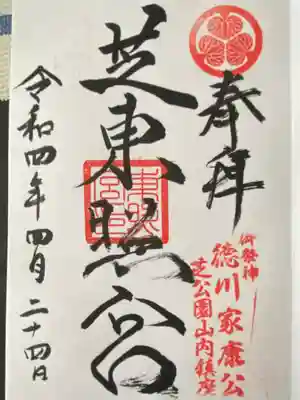 奉拝
御祭神
徳川家康公
芝公園山内鎮座
芝東照宮
令和四年四月二十四日